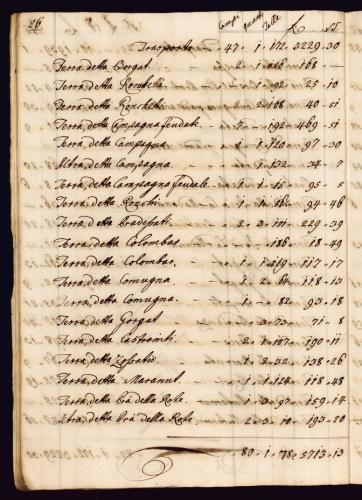 26
Campi quarti Tolle £ sd.
Trasporto 47 - 1 - 172 - 3229 - 30
Terra, detta Borgat - 2 - 1 - 168 -
Terra, detta Rombetti - 1 - 92 - 25 - 10
Terra, detta Roncheti - 2 - 108 - 40 - 51
Terra, detta Campagna feudale - 7 - 192 - 469 - 51
Terra, detta Campagna - 1 - 1 - 120 - 97 - 30
Altra, detta Campagna - 1 - 132 - 34 - 7
Terra, detta Campagna feudale - 1 - 1 - 15 - 95 - 5
Terra, detta - 1 - 1 - 16 - 94 - 46
Terra, detta Bradessati - 2 - 3 - 111 - 229 - 39
Terra, detta Colombar - 186 - 18 - 49
Terra, detta Colombar - 1 - 1 - 219 - 117 - 17
Terra, detta Comugna - 1 - 2 - 64 - 118 - 13
Terra, detta Comugna - 1 - 82 - 93 - 18
Terra, detta Gorgat - 3 - 73 - 71 - 8
Terra, detta - 2 - 1 - 187 - 190 - 11
Terra, detta - 1 - 2 - 32 - 138 - 26
Terra, detta Maranut - 1 - 1 - 124 - 118 - 48
Terra, detta brà della Role - 1 - 3 - 97 - 159 - 14
Altra, detta brà della Role - 2 - 3 - 10 - 193 - 20
80 - 1 - 78 - 5713 - 13